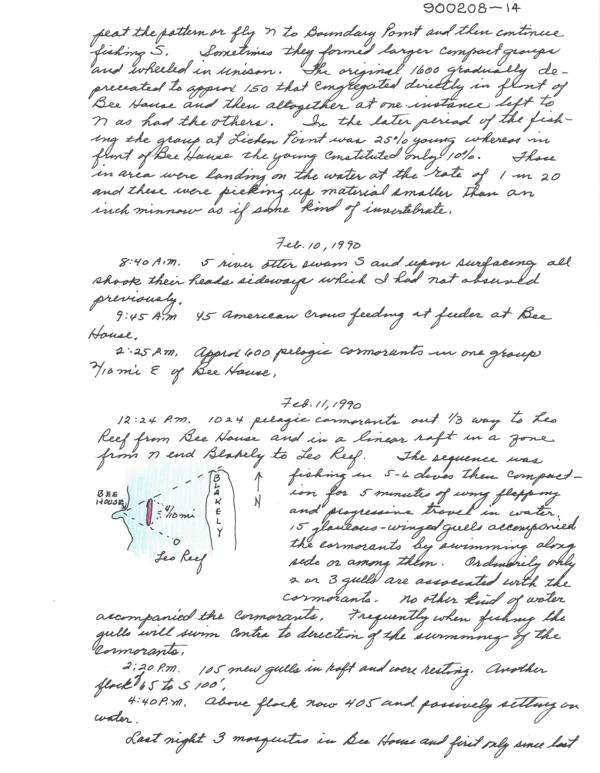 900208-14
peat the pattern or fly N to Boundary Point and then continue
fishing S. Sometimes they formed larger compact groups
and wheeled in unison. The original 1600 gradually de-
preceated to approx 150 that congregated directly in front of
Bee House and then altogether at one instance left to
N as had the others. In the later period of the fish-
ing the group at Lichen Point was 25% young whereas in
front of Bee House the young constituted only 10%. Those
in area were landing on the water at the rate of 1 in 20
and these were picking up material smaller than an
inch minnow as if some kind of invertebrate.
Feb. 10, 1990
8:40 A.M. 5 river otter swam S and upon surfacing all
shook their heads sideways which I had not observed
previously.
9:45 A.M 45 American crows feeding at feeder at Bee
House.
2:25 A.M. Approx 600 pelagic cormorants in one group
2/10 mi E of Bee House.
Feb. 11, 1990
12:24 P.M. 1024 pelagic cormorants out 1/3 way to Leo
Reef from Bee House and in a linear raft in a zone
from N end Blakely to Leo Reef. The sequence was
fishing in 5-6 dives then compact-
ion for 5 minutes of wing flapping
and progressive travel in water.
15 glaucous-winged gulls accompanied
the cormorants by swimming along
side or among them. Ordinarily only
2 or 3 gulls are associated with the
cormorants. No other kind of water
BEE
HOUSE
4/10 mi
BLAKELY
N
Leo Reef
accompanied the cormorants. Frequently when fishing the
gulls will swim contra to direction of the swimming of the
cormorants.
2:20 P.M. 105 mew gulls in raft and were resting. Another
flock 65 to S 100'.
4:40 P.M. Above flock now 405 and passively sitting on
water.
Last night 3 mosquitos in Bee House and first only since last